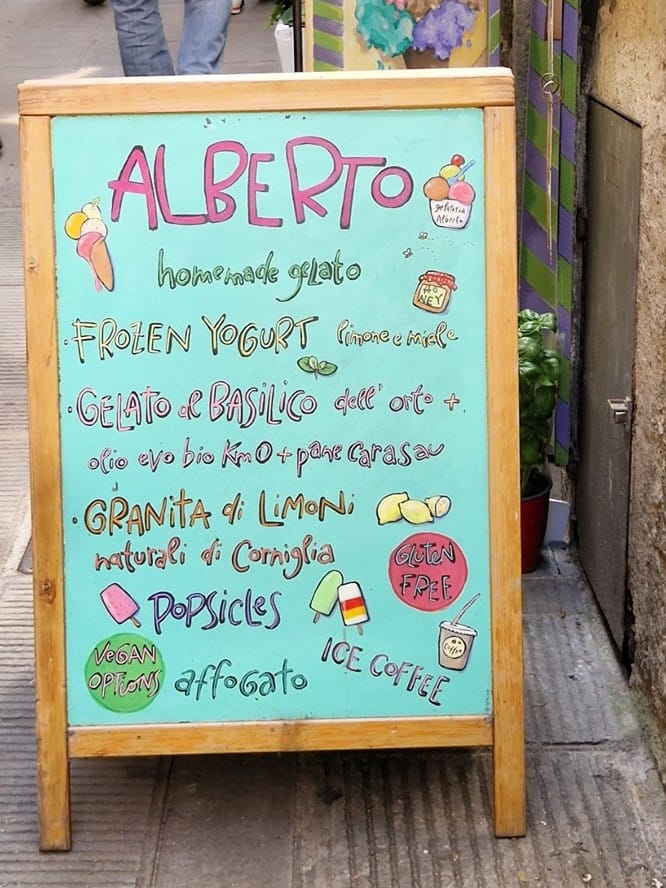 ALBERTO
gelateria
Alberto
homemade gelato
HO
NEY
• FROZEN YOGURT limone e miele
• GELATO al BASILICO dell' orto +
olio evo bio Km 0 + pane carasau
• GRANITA di LIMONi
naturali di Corniglia
GLUTEN
FREE
POPSICLES
Coffee
ICE COFFEE
VEGAN
OPTIONS
affoGato